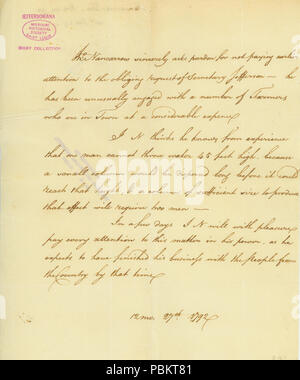 JEFFERSONIANA
MISSOURI
HISTORICAL
SOCIETY
SAINT LOUIS
BIXBY COLLECTION
Nancarrow sincerely asks pardon for not paying earlier
attention to the obliging request of Secretary Jefferson — he
has been unusually engaged with a number of Farmers
who are in Town at a considerable expence
J N thinks he knows from experience
that one man cannot throw water 45 feet high, because
a small column would be dispersed long before it could
reach that height, & a column of sufficient size to produce
that effect will require two men —
In a few days J N will with pleasure
pay every attention to this matter in his power, as he
expects to have finished his business with the people from
the Country by that time
12 mo. 27th 1792
alamy
Image ID: PBKT81
www.alamy.com